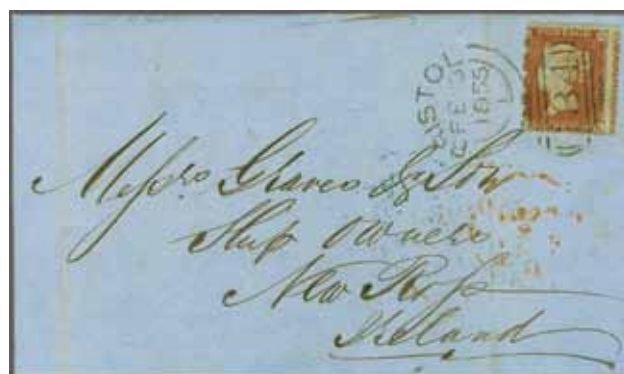 BRISTOL
FE
1855
134
Messrs Graves & Son
Ship owners
New Ross
Ireland